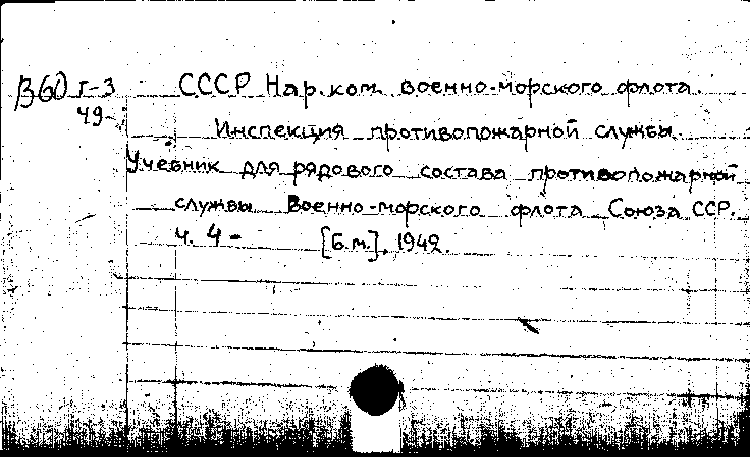 В60 Г-3 СССР Нар.ком. военно-морского флота.
49-
Инспекция противопожарной службы.
Учебник для рядового состава противопожарной
службы Военно-морского флота Союза ССР.
ч. 4- [Б.м.], 1942.